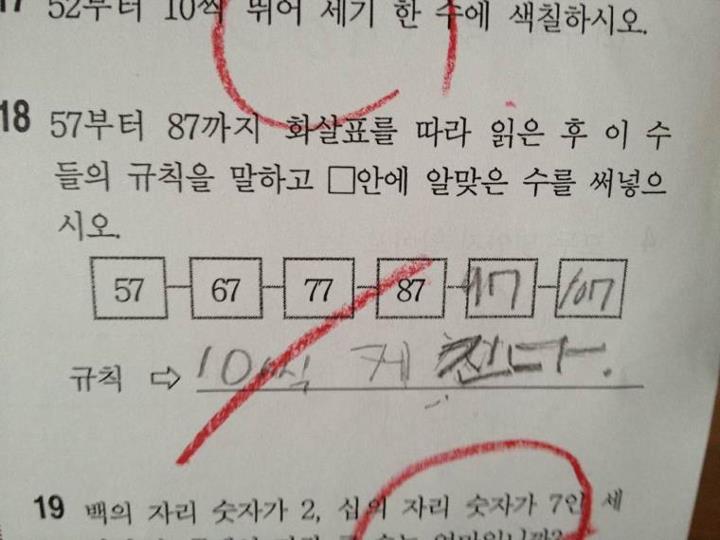 17 52부터 10씩 뛰어 세기 한 수에 색칠하시오.
18 57부터 87까지 화살표를 따라 읽은 후 이 수
들의 규칙을 말하고 □안에 알맞은 수를 써넣으
시오.
57 67 77 87 97 107
규칙 ⇨ 10씩 게
19 백의 자리 숫자가 2, 십의 자리 숫자가 7인 세